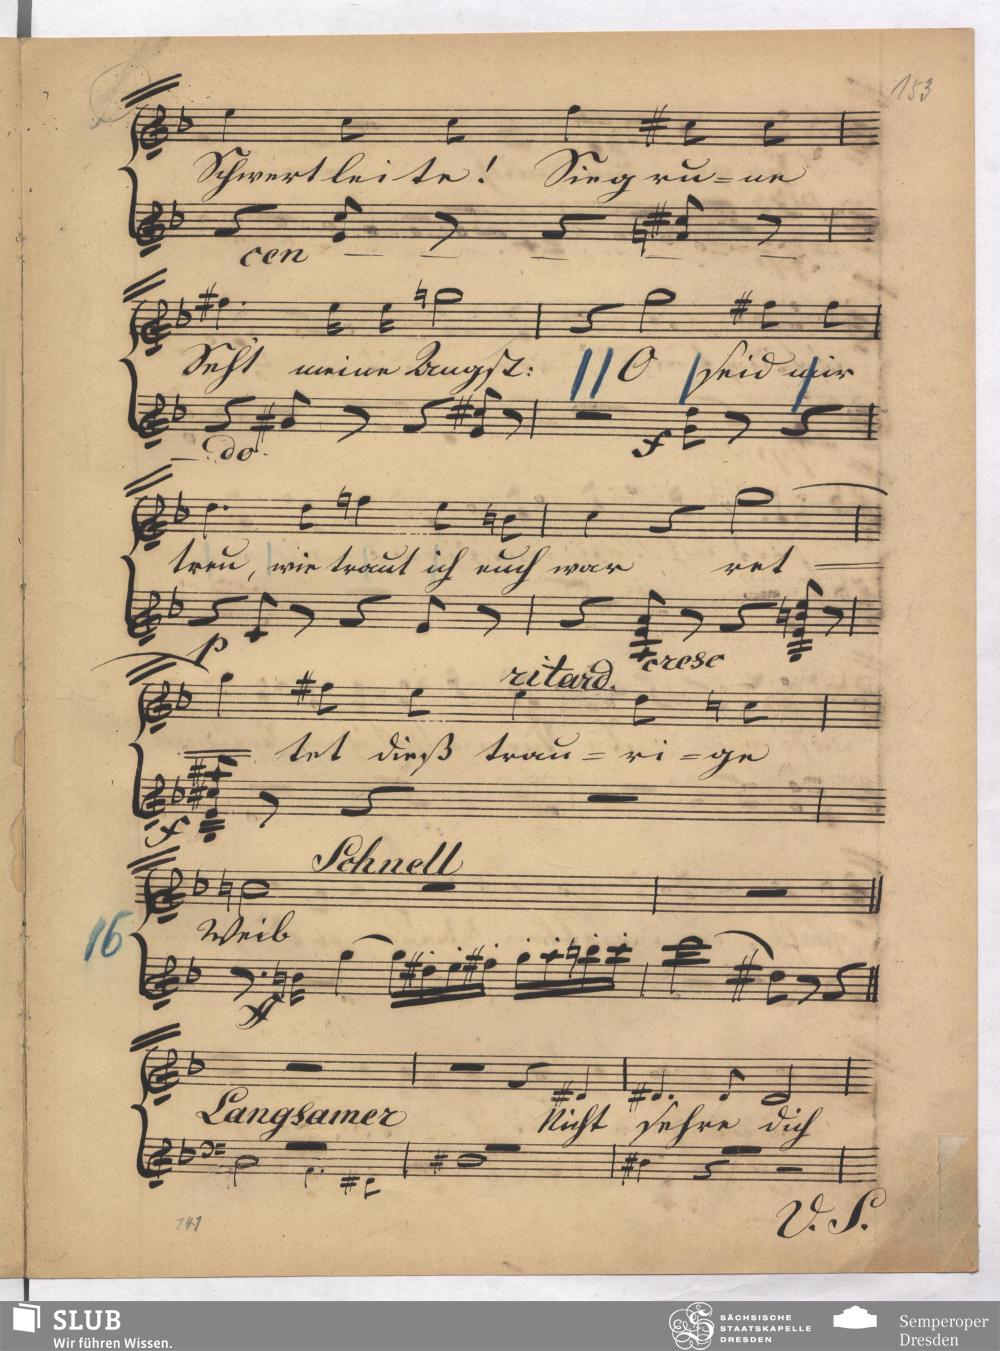 153
Schwertleite! Siegru=ne
cen
Seht meine Angst: O seid mir
do.
f
treu, wie traut ich euch war ret
p cresc
ritard.
tet dieß trau=ri=ge
f
Schnell
16
Weib
ff
Langsamer Nicht sehre dich
V. S.
141
SLUB
Wir führen Wissen.
SÄCHSISCHE
STAATSKAPELLE
DRESDEN
Semperoper
Dresden